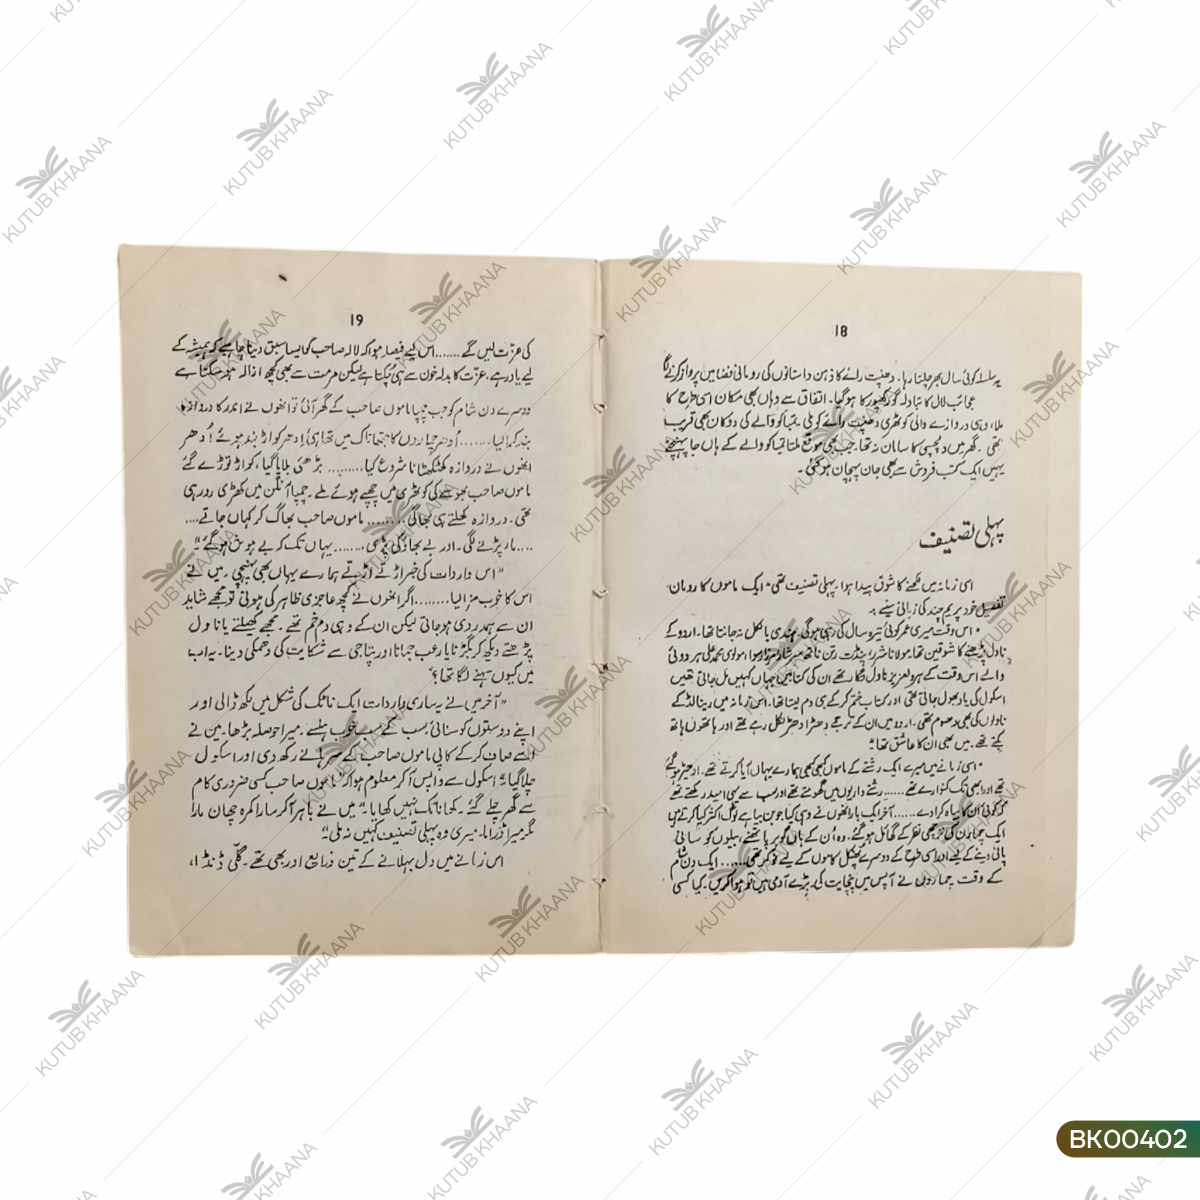 18
یہ سلسلہ کوئی سال بھر چلتا رہا۔ دھنپت رائے کا ذہن داستانوں کی رومانی فضا میں پرواز کرنے لگا
عجائب لال کا تبادلہ گورکھپور کا ہوگیا۔ اتفاق سے وہاں بھی مکان اسی طرح کا
ملا، وہی دروازے والی کوٹھری دھنپت رائے کو ملی۔ تمباکو والے کی دوکان بھی قریب
تھی۔ گھر میں دلچسپی کا سامان نہ تھا۔ جب بھی موقع ملتا تمباکو والے کے ہاں جا پہنچتے
یہیں ایک کتب فروش سے بھی جان پہچان ہوگئی۔
پہلی تصنیف
اسی زمانہ میں لکھنے کا شوق پیدا ہوا۔ پہلی تصنیف تھی "ایک ماموں کا رومان"
تفصیل خود پریم چند کی زبانی سنیے:
"اس وقت میری عمر کوئی تیرہ سال کی رہی ہوگی۔ ہندی بالکل نہ جانتا تھا۔ اردو کے
ناول پڑھنے کا شوقین تھا۔ مولانا شرر، پنڈت رتن ناتھ سرشار، مرزا رسوا، مولوی محمد علی ہردوئی
والے اس وقت کے ہر دلعزیز ناول نگار تھے۔ ان کی کتابیں جہاں کہیں مل جاتی تھیں
اسکول کی یاد بھول جاتی تھی اور کتاب ختم کرکے ہی دم لیتا تھا۔ اس زمانہ میں رینالڈ کے
ناولوں کی بھی دھوم تھی۔ اردو میں ان کے ترجمے دھڑا دھڑ نکل رہے تھے اور ہاتھوں ہاتھ
بکتے تھے۔ میں بھی ان کا عاشق تھا"
"اسی زمانے میں میرے ایک رشتے کے ماموں کبھی کبھی ہمارے یہاں آیا کرتے تھے۔ ادھیڑ ہوگئے
تھے اور ابھی تک کنوارے تھے...... رشتے داریوں میں گھومتے تھے اور سب سے یہی امید رکھتے تھے
کہ کوئی ان کا بیاہ کرا دے...... آخر ایک بار انھوں نے وہی کیا جو بن بیاہے لوگ اکثر کیا کرتے ہیں
ایک چمارن کی ترچھی نظر کے گھائل ہوگئے۔ وہ ان کے ہاں گوبر پاتھنے، بیلوں کو سانی
پانی دینے کے لیے اور اسی طرح کے دوسرے پھٹکل کاموں کے لیے نوکر تھی...... ایک دن شام
کے وقت چماروں نے آپس میں پنچایت کی۔ بڑے آدمی ہیں تو ہوا کریں۔ کیا کسی
19
کی عزت لیں گے...... اس لیے فیصلہ ہوا کہ لالہ صاحب کو ایسا سبق دینا چاہیے کہ ہمیشہ کے
لیے یاد رہے۔ عزت کا بدلہ خون سے ہی چکتا ہے لیکن مرمت سے بھی کچھ ازالہ ہو سکتا ہے
دوسرے دن شام کو جب چمپا ماموں صاحب کے گھر آئی تو انھوں نے اندر کا دروازہ
بند کر لیا...... اُدھر چماروں کا جتھا تاک میں تھا ہی۔ اِدھر کواڑ بند ہوئے اُدھر
انھوں نے دروازہ کھٹکھٹانا شروع کیا........ بڑھئی بلایا گیا، کواڑ توڑے گئے
ماموں صاحب بھوسے کی کوٹھری میں چھپے ہوئے ملے۔ چمپا آنگن میں کھڑی رو رہی
تھی۔ دروازہ کھلتے ہی بھاگی........ ماموں صاحب بھاگ کر کہاں جاتے....
.... مار پڑنے لگی۔ اور بے بھاؤ کی پڑی....... یہاں تک کہ بے ہوش ہوگئے"
"اس واردات کی خبر اڑتے اڑتے ہمارے یہاں بھی پہنچی۔ میں نے
اس کا خوب مزا لیا........ اگر انھوں نے کچھ عاجزی ظاہر کی ہوتی تو مجھے شاید
ان سے ہمدردی ہوجاتی لیکن ان کے وہی دم خم تھے۔ مجھے کھیلتے یا ناول
پڑھتے دیکھ کر بگڑنا یا رعب جمانا اور پتاجی سے شکایت کی دھمکی دینا۔ یہ اب
میں کیوں سہنے لگا تھا؟"
"آخر میں نے یہ ساری واردات ایک ناٹک کی شکل میں لکھ ڈالی اور
اپنے دوستوں کو سنائی۔ سب کے سب خوب ہنسے۔ میرا حوصلہ بڑھا۔ میں نے
اسے صاف کرکے کاپی ماموں صاحب کے سرہانے رکھ دی اور اسکول
چلا گیا" اسکول سے واپس آکر معلوم ہوا کہ ماموں صاحب کسی ضروری کام
سے گھر چلے گئے۔ کھانا تک نہیں کھایا" میں نے باہر آکر سارا کمرہ چھان مارا
مگر میرا ڈراما۔ میری وہ پہلی تصنیف کہیں نہ ملی"
اس زمانے میں دل بہلانے کے تین ذرایع اور بھی تھے۔ گلی ڈنڈا،
KUTUB KHAANA
BK00402